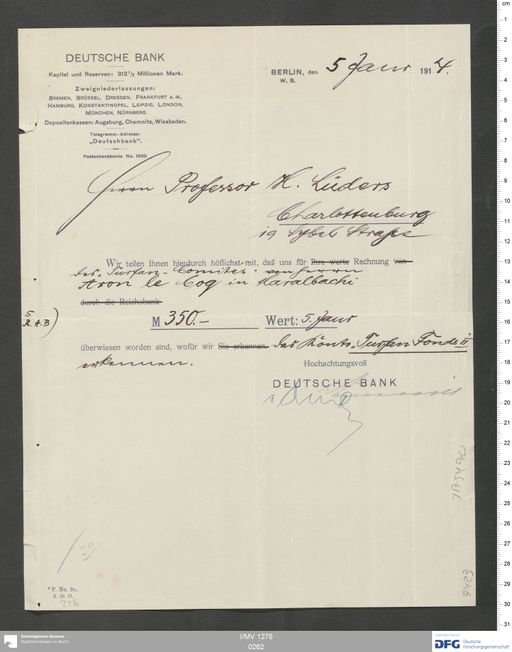 DEUTSCHE BANK
Kapital und Reserven: 312½ Millionen Mark.
Zweigniederlassungen:
BREMEN, BRÜSSEL, DRESDEN, FRANKFURT A. M.,
HAMBURG, KONSTANTINOPEL, LEIPZIG, LONDON,
MÜNCHEN, NÜRNBERG.
Depositenkassen: Augsburg, Chemnitz, Wiesbaden.
Telegramm-Adresse:
„Deutschbank".
Postscheckkonto No. 1000.
BERLIN, den 5 Janr 1914.
W. 8.
Herrn Professor H. Lüders
Charlottenburg
19 Sybel Straße
Wir teilen Ihnen hierdurch höflichst mit, daß uns für Ihre werte Rechnung von
des Turfan-Comites von Herrn
Aron le Coq in Maralbachi
durch die Reichsbank
M 350.- Wert: 5. Janr
überwiesen worden sind, wofür wir Sie erkennen. das Konto Turfan Fonds II
erkennen.
Hochachtungsvoll
DEUTSCHE BANK
* F. No. 9a.
256
I/MV 1275
0262
Ethnologisches Museum
Staatliche Museen zu Berlin
DFG Deutsche
Forschungsgemeinschaft